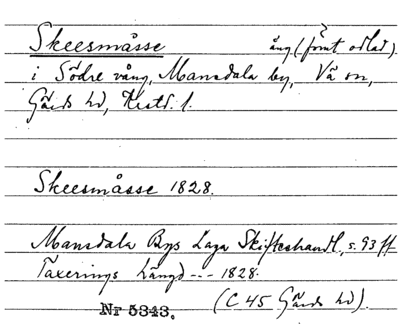 Skeesmåsse äng (förut odlad)
i Södre vång, Mansdala by, Vä sn,
Gärds hd, Krist. l.
Skeesmåsse 1828.
Mansdala Bys Laga Skifteshandl., s. 93 ff
Taxerings Längd --- 1828.
Nr 5343. (C 45 Gärds hd).